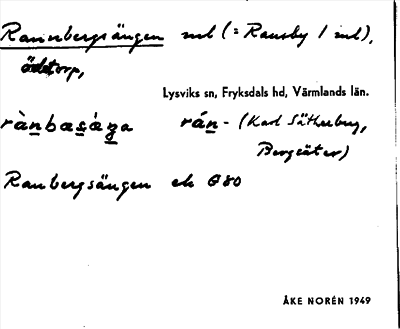 Rannbergsängen ml (= Ransby 1 ml),
ödetorp,
Lysviks sn, Fryksdals hd, Värmlands län.
rànbæsæ̀ŋa rán- (Karl Sätherberg,
Bergsäter)
Ranbergsängen ek G80
ÅKE NORÉN 1949